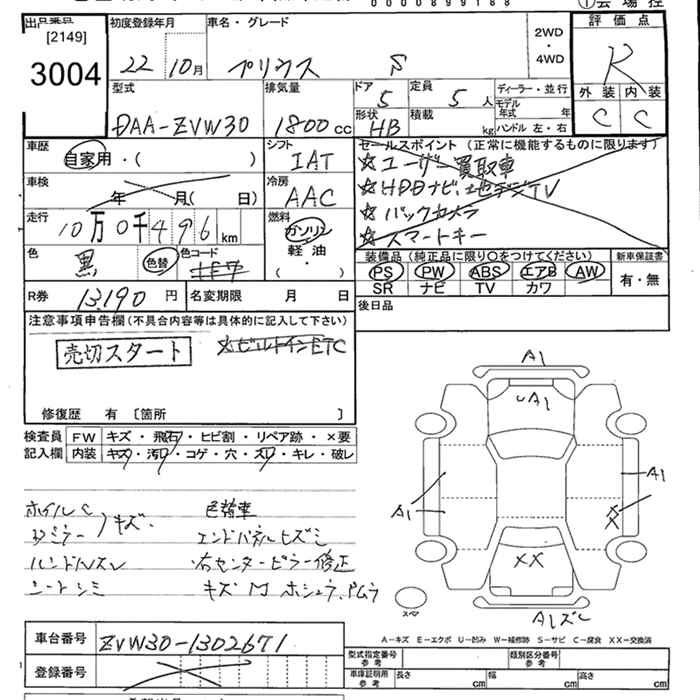 0000899188
出品番号
[2149]
3004
初度登録年月
22 10月
車名・グレード
プリウス S
2WD
・
4WD
評価点
R
外装 内装
C C
型式
DAA-ZVW30
排気量
1800cc
ドア
5
形状
HB
定員
5人
積載
kg
ディーラー・並行
モデル年式 年
ハンドル 左・右
車歴
自家用・( )
シフト
IAT
冷房
AAC
燃料
ガソリン
軽・油
・
( )
セールスポイント (正常に機能するものに限ります)
☆ユーザー買取車
☆HDDナビ、地デジTV
☆バックカメラ
☆スマートキー
車検
年 月( 日)
走行
10万0千496km
色
黒
色替
色コード
装備品 (純正品に限り○をつけてください)
PS PW ABS エアB AW
SR ナビ TV カワ
新車保証書
有・無
R券
13,190円
名変期限 月 日
後日品
注意事項申告欄(不具合内容等は具体的に記入して下さい)
売切スタート
☆ビルトインETC
修復歴 有 〔箇所 〕
検査員
記入欄
FW キズ・飛石・ヒビ割・リペア跡・×要
内装 キズ・汚れ・コゲ・穴・スレ・キレ・破レ
ホイルC
ドミラー 〉キズ・
ハンドルスレ
シートシミ
色替車
エンドパネルヒズミ
右センターピラー修正
キズ
A1
A1
A1
A1
XX
XX
スペア
A1ズC
A-キズ E-エクボ U-凹み W-補修跡 S-サビ C-腐食 XX-交換済
車台番号
ZVW30-1302671
登録番号
型式指定番号
参考
類別区分番号
参考
車庫証明用
参考
長さ cm
幅 cm
高さ cm